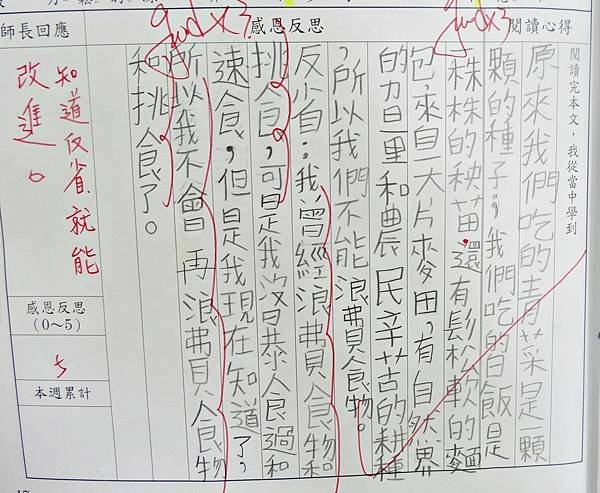 閱讀心得
感恩反思
師長回應
閱讀完本文，我從當中學到
原來我們吃的青菜是一顆
顆的種子；我們吃的白飯是
一株株的秧苗，還有鬆軟的麵
包，來自一大片麥田，有自然界
的力量和農民辛苦的耕種
，所以我們不能浪費食物。
反省自：我曾經浪費食物和
挑食，可是我沒暴食過和
速食，但是我現在知道了，
所以我不會再浪費食物
和挑食了。
good x3
good x3
知道反省就能
改進。
感恩反思
(0~5)
5
本週累計